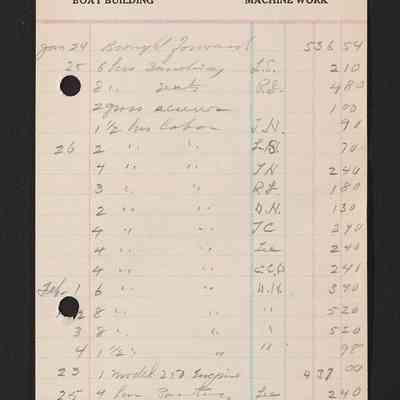 BOAT BUILDING MACHINE WORK
Jan 24 Brought Forward 536 54
25 6 hrs Sanding L.S. 2 10
8 " Seats R.L. 4 80
2 gross screws 1 00
1 1/2 hrs labor J.N. 90
26 2 " " L.S. 70
4 " " J.N 2 40
3 " " R L 1 80
2 " " D.N. 1 30
4 " " J C 2 40
4 " " Lee 2 40
4 " " 2 41
Feb. 1 6 " " 3 90
2 8 " " " 5 20
3 8 " " " 5 20
4 1 1/2 " " " 98
23 1 model 250 Engine 437 00
25 4 hrs Painting, Lee 2 40